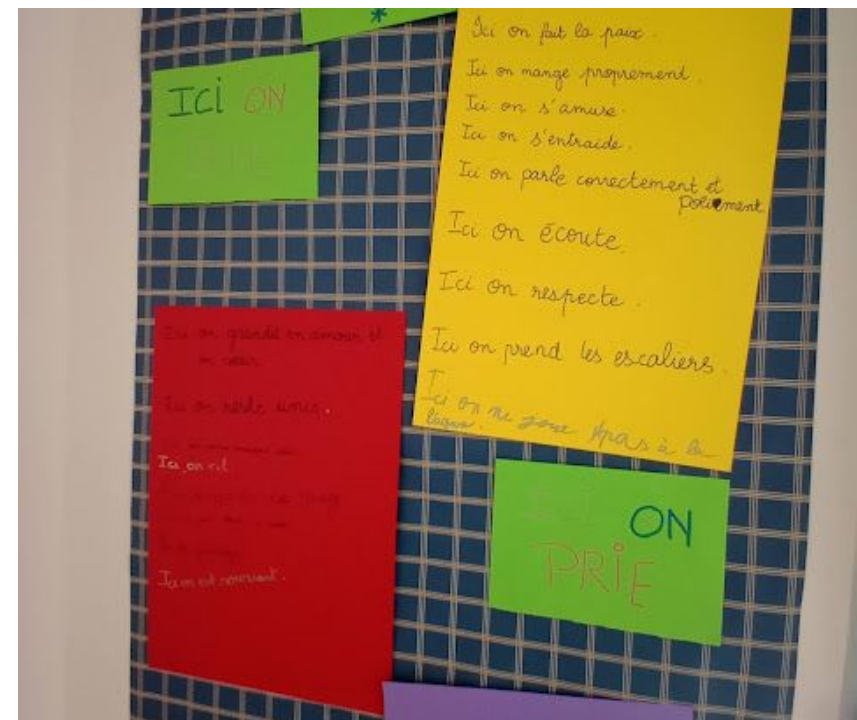 ICI ON
Ici on fait la paix.
Ici on mange proprement.
Ici on s'amuse.
Ici on s'entraide.
Ici on parle correctement et
poliment
Ici on écoute.
Ici on respecte.
Ici on prend les escaliers.
Ici on ne joue pas à la
Ici on grandit en amour et
en cœur
Ici on reste unis.
Ici, on rit
Ici on est souriant.
ON
PRIE